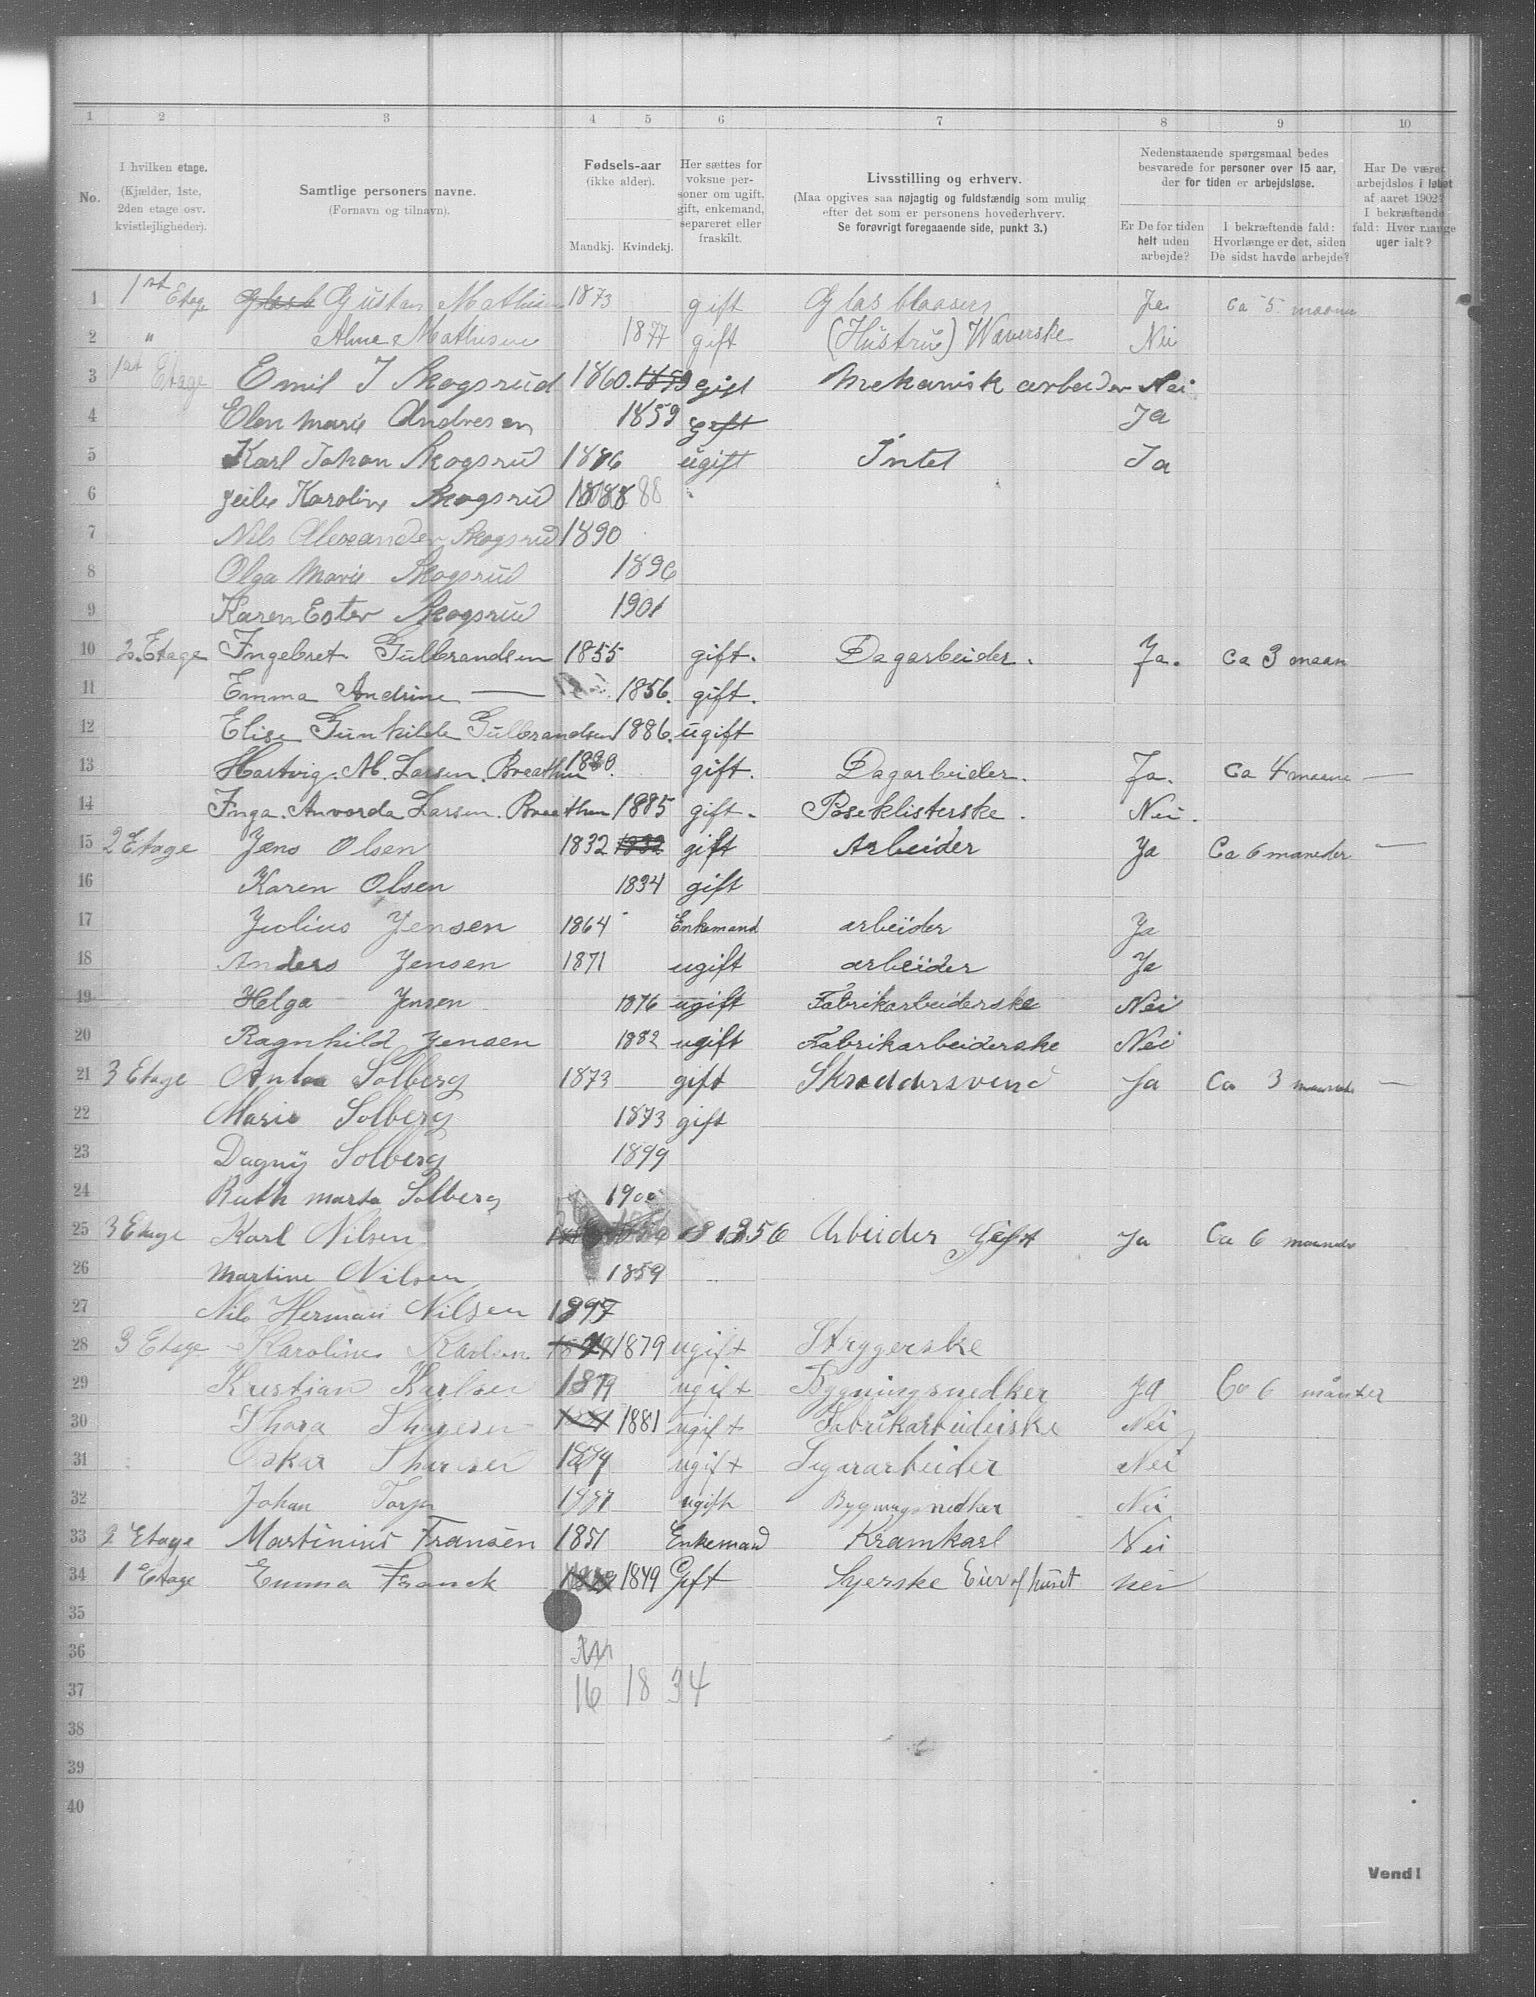 1 2 3 4 5 6 7 8 9 10
No. I hvilken etage. (Kjælder, 1ste, 2den etage osv. kvistlejligheder). Samtlige personers navne. (Fornavn og tilnavn). Fødsels-aar (ikke alder). Mandkj. Kvindekj. Her sættes for voksne personer om ugift, gift, enkemand, separeret eller fraskilt. Livsstilling og erhverv. (Maa opgives saa nøjagtig og fuldstændig som mulig efter det som er personens hovederhverv. Se forøvrigt foregaaende side, punkt 3.) Nedenstaaende spørgsmaal bedes besvarede for personer over 15 aar, der for tiden er arbejdsløse. Er De for tiden helt uden arbejde? I bekræftende fald: Hvorlænge er det, siden De sidst havde arbejde? Har De været arbejdsløs i løbet af aaret 1902? I bekræftende fald: Hvor mange uger ialt?
1 1st Etage Gustav Mathisen 1873 gift Glasblaaser Ja ca 5 maane
2 " Alma Mathisen 1877 gift (Hustru) Væverske Nei
3 1st Etage Emil J Skogsrud 1860. 1859 gift Mekanisk arbeider Nei
4 Elen Marie Andresen 1859 gift Ja
5 Karl Johan Skogsrud 1886 ugift Intet Ja
6 Karoline Skogsrud 1888 88
7 Nils Alexander Skogsrud 1890
8 Olga Marie Skogsrud 1896
9 Karen Ester Skogsrud 1901
10 2. Etage Ingebret Gulbrandsen 1855 gift. Dagarbeider. Ja. Ca 3 maan
11 Emma Andrine — 1856. gift.
12 Elise Gunhilde Gulbrandsen 1886. ugift
13 Hartvig. M. Larsen. Braathen 1880. gift. Dagarbeider. Ja. Ca 4 maane —
14 Inga. Anvorda Larsen. Braathen 1885 gift. Poseklisterske. Nei.
15 2 Etage Jens Olsen 1832 1832 gift Arbeider Ja Ca 6 maneder —
16 Karen Olsen 1834 gift
17 Julius Jensen 1864 Enkemand arbeider Ja
18 Anders Jensen 1871 ugift arbeider Ja
19 Helga Jensen 1876 ugift Fabrikarbeiderske Nei
20 Ragnhild Jensen 1882 ugift Fabrikarbeiderske Nei
21 3 Etage Anton Solberg 1873 gift Skræddersvend Ja Ca 3 —
22 Marie Solberg 1873 gift
23 Dagny Solberg 1899
24 Ruth Marta Solberg 1900
25 3 Etage Karl Nilsen 1856 Arbeider Gift Ja Ca 6 maneder
26 Martine Nilsen 1859
27 Nils Herman Nilsen 1897
28 3 Etage Karoline Karlsen 1879 1879 ugift Strygerske
29 Kristian Karlsen 1879 ugift Bygningsnedker Ja Ca 6 månter
30 Thora Thoresen 1881 1881 ugift Fabrikarbeiderske Nei
31 Oskar Thoresen 1879 ugift Sigararbeider Nei
32 Johan Torp 1877 ugift Bygningsnedker Nei
33 2 Etage Martinius Fransen 1851 Enkemand Kramkarl Nei
34 1 Etage Emma Franck 1849 Gift Syerske Eier af huset Nei
35
36
37 16 18 34
38
39
40
Vend!